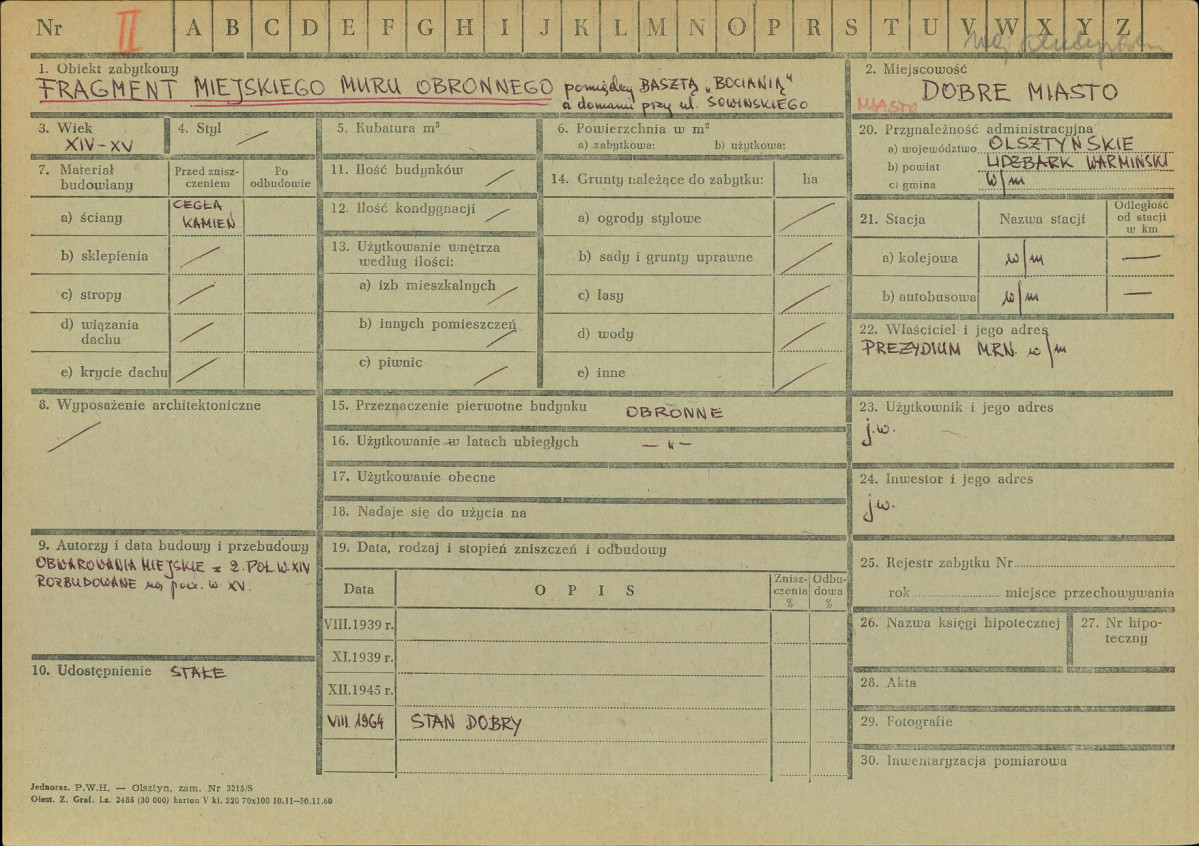 Nr II A B C D E F G H I J K L M N O P R S T U V W X Y Z
1. Obiekt zabytkowy
FRAGMENT MIEJSKIEGO MURU OBRONNEGO pomiędzy BASZTĄ „BOCIANIĄ"
a domami przy ul. SOWIŃSKIEGO
2. Miejscowość
MIASTO DOBRE MIASTO
3. Wiek
XIV-XV
4. Styl
5. Kubatura m³
6. Powierzchnia w m²
a) zabytkowa: b) użytkowa:
20. Przynależność administracyjna
a) województwo OLSZTYŃSKIE
b) powiat LIDZBARK WARMIŃSKI
c) gmina w/m
7. Materiał budowlany
Przed znisz-
czeniem
Po
odbudowie
a) ściany CEGŁA
KAMIEŃ
b) sklepienia
c) stropy
d) wiązania
dachu
e) krycie dachu
11. Ilość budynków
12. Ilość kondygnacji
13. Użytkowanie wnętrza
według ilości:
a) izb mieszkalnych
b) innych pomieszczeń
c) piwnic
14. Grunty należące do zabytku: ha
a) ogrody stylowe
b) sady i grunty uprawne
c) lasy
d) wody
e) inne
21. Stacja Nazwa stacji
Odległość
od stacji
w km
a) kolejowa w/m —
b) autobusowa w/m —
22. Właściciel i jego adres
PREZYDIUM M.R.N. w/m
8. Wyposażenie architektoniczne
15. Przeznaczenie pierwotne budynku OBRONNE
16. Użytkowanie w latach ubiegłych — „ —
17. Użytkowanie obecne
18. Nadaje się do użycia na
23. Użytkownik i jego adres
j.w.
24. Inwestor i jego adres
j.w.
9. Autorzy i data budowy i przebudowy
OBWAROWANIA MIEJSKIE z 2. POŁ. W. XIV
ROZBUDOWANE na pocz. w. XV.
10. Udostępnienie STAŁE
19. Data, rodzaj i stopień zniszczeń i odbudowy
Data OPIS
Znisz-
czenia
%
Odbu-
dowa
%
VIII.1939 r.
XI.1939 r.
XII.1945 r.
VIII.1964 STAN DOBRY
25. Rejestr zabytku Nr
rok miejsce przechowywania
26. Nazwa księgi hipotecznej
27. Nr hipo-
teczny
28. Akta
29. Fotografie
30. Inwentaryzacja pomiarowa
Jednoraz. P.W.H. — Olsztyn, zam. Nr 3215/S
Olszt. Z. Graf. Lz. 2485 (30 000) karton V kl. 220 70x100 10.11—30.11.60